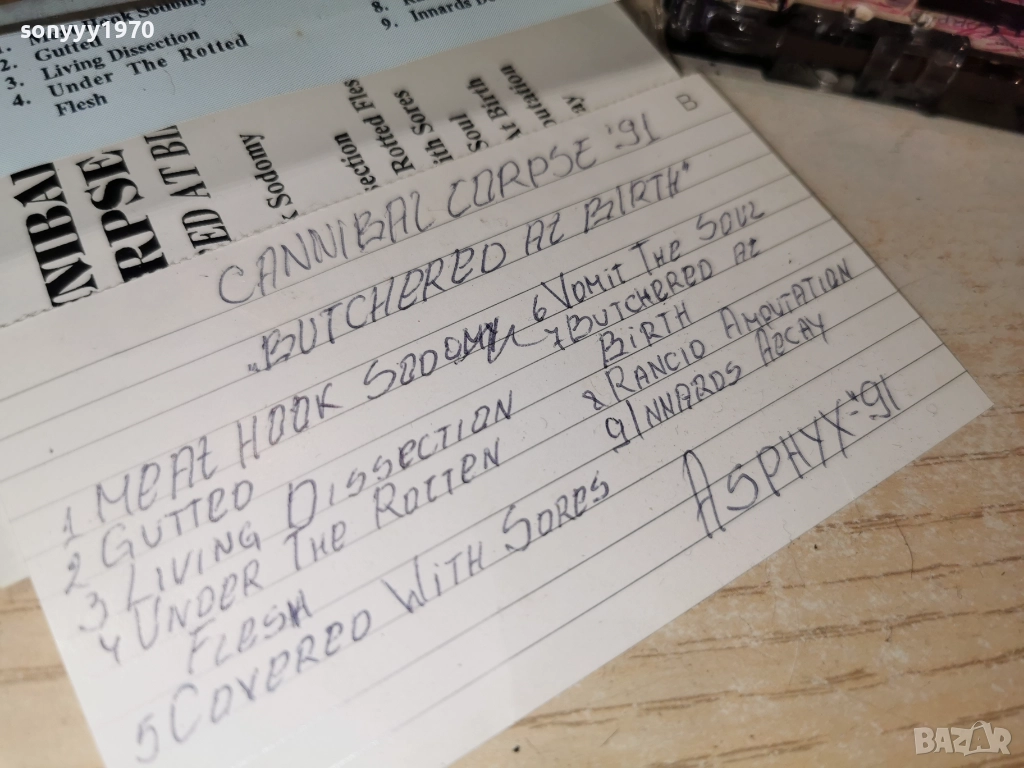 sonyyy1970
Sodomy
2. Gutted
3. Living Dissection
4. Under The Rotted
Flesh
8.
9. Innards
Sodomy
Rotted Fles
Rotted
Soul
At Birth
B
CANNIBAL CORPSE '91
„BUTCHERED At BIRTH"
1 MEAt HOOK SODOMY
2 GUTTED
3 LIVING DISSECTION
4 UNDER THE ROTTEN
FLESH
5 COVERED WITH SORES
6 VOMIT THE SOUL
7 BUTCHERED At
BIRTH
8 RANCID AMPUTATION
9 INNARDS DECAY
ASPHYX-'91
BAZAR